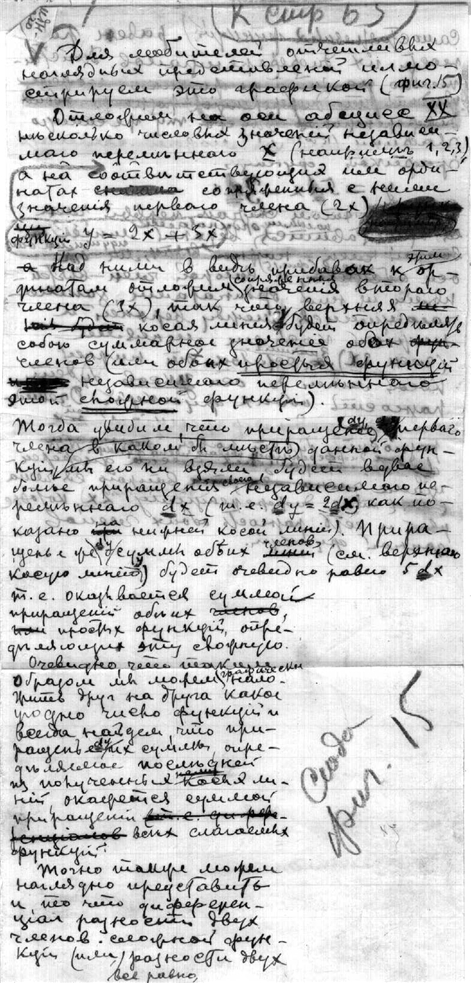 К стр 65
Для любителей отчетливых
наглядных представлений иллю-
стрируем это графикой (фиг. 15)
Отложим на оси абсцисс XX
несколько числовых значений независи-
маго переменнаго X (например 1, 2, 3)
а на соответствующих им орди-
натах сопряженныя с ними
значения перваго члена (2x)
функции y = 2x + 3x
а над ними в виде прибавок к этим ор-
динатам отложим сопряженныя значения второго
члена (3x), так что верхняя
косая линия будет определять
собою суммарное значение обоих
членов (или обоих простых функций
независимого переменнаго
этой сложной функции).
Тогда увидим, что приращение dy перваго
члена в каком бы месте данной функ-
ции мы его ни взяли будет вдвое
больше приращения независимого пе-
ременнаго dx (т.е. dy = 2dx) как по-
казано на нижней косой линии). Прира-
щение же dy суммы обоих членов (см. верхнюю
косую линию) будет очевидно равно 5dx
т.е. оказывается суммой
приращений обоих членов,
простых функций, опре-
деляющих эту сложную.
Очевидно что таким
образом мы можем графически нало-
жить друг на друга какое
угодно число функций и
всегда найдем что при-
ращение dy их суммы, опре-
деляемое последней
из полученных нами косых ли-
ний, окажется суммой
приращений
всех слагаемых
функций.
Точно также можем
наглядно представить
и то что диферен-
циал разности двух
членов сложной функ-
ции (или) разности двух
все равно
Сюда
фиг. 15